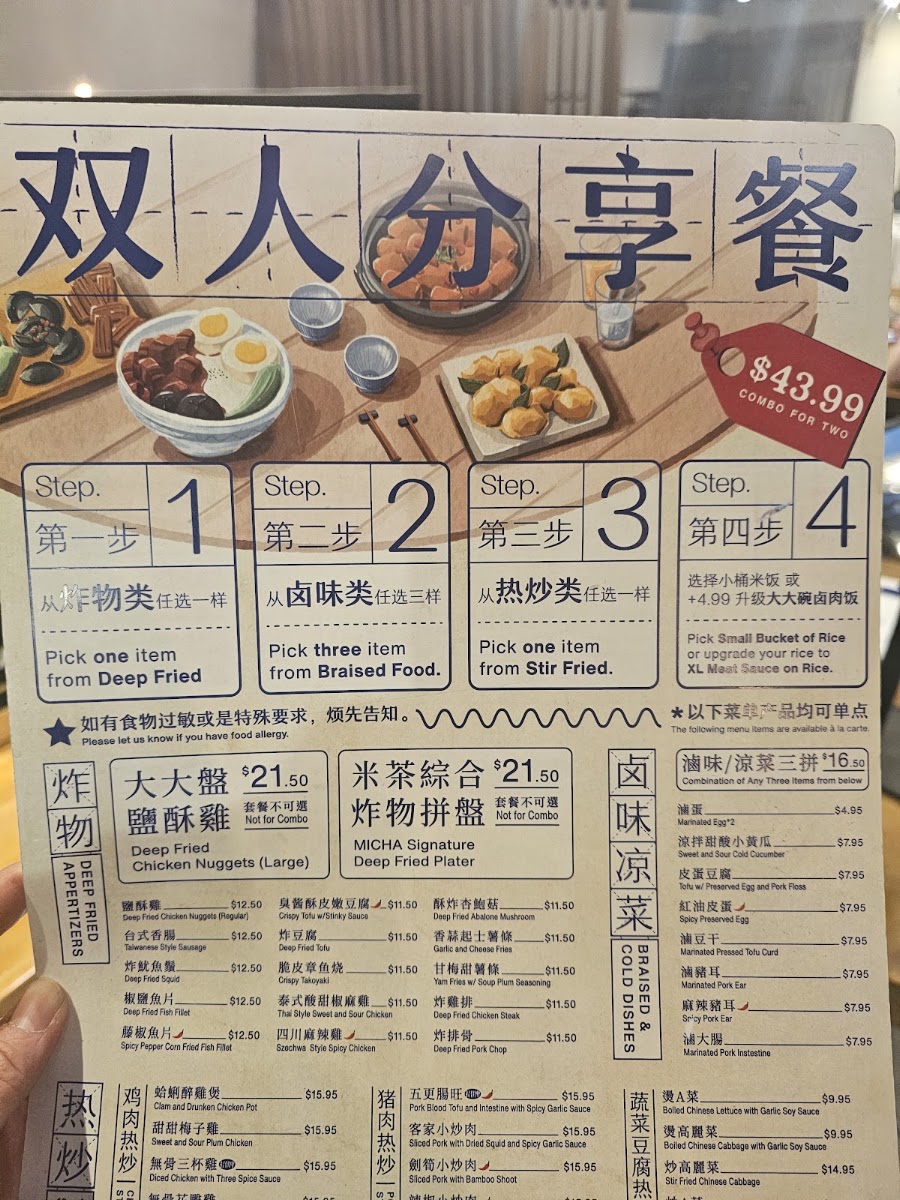 双人分享餐
$43.99
COMBO FOR TWO
Step. 1
第一步
从炸物类任选一样
Pick one item
from Deep Fried
Step. 2
第二步
从卤味类任选三样
Pick three item
from Braised Food.
Step. 3
第三步
从热炒类任选一样
Pick one item
from Stir Fried.
Step. 4
第四步
选择小桶米饭 或
+4.99 升级大大碗卤肉饭
Pick Small Bucket of Rice
or upgrade your rice to
XL Meat Sauce on Rice.
★如有食物过敏或是特殊要求，烦先告知。
Please let us know if you have food allergy.
*以下菜单产品均可单点
The following menu items are available à la carte.
炸物
DEEP FRIED
APPERTIZERS
大大盤 $21.50
鹽酥雞 套餐不可選
Not for Combo
Deep Fried
Chicken Nuggets (Large)
米茶綜合 $21.50
炸物拼盤 套餐不可選
Not for Combo
MICHA Signature
Deep Fried Plater
鹽酥雞 $12.50
Deep Fried Chicken Nuggets (Regular)
台式香腸 $12.50
Taiwanese Style Sausage
炸魷魚鬚 $12.50
Deep Fried Squid
椒鹽魚片 $12.50
Deep Fried Fish Fillet
藤椒魚片 $12.50
Spicy Pepper Corn Fried Fish Fillet
臭醬酥皮嫩豆腐 $11.50
Crispy Tofu w/Stinky Sauce
炸豆腐 $11.50
Deep Fried Tofu
脆皮章鱼烧 $11.50
Crispy Takoyaki
泰式酸甜椒麻雞 $11.50
Thai Style Sweet and Sour Chicken
四川麻辣雞 $11.50
Szechwa Style Spicy Chicken
酥炸杏鮑菇 $11.50
Deep Fried Abalone Mushroom
香蒜起士薯條 $11.50
Garlic and Cheese Fries
甘梅甜薯條 $11.50
Yam Fries w/ Soup Plum Seasoning
炸雞排 $11.50
Deep Fried Chicken Steak
炸排骨 $11.50
Deep Fried Pork Chop
卤味凉菜
BRAISED &
COLD DISHES
滷味/涼菜三拼 $16.50
Combination of Any Three Items from below
滷蛋 $4.95
Marinated Egg*2
涼拌甜酸小黃瓜 $7.95
Sweet and Sour Cold Cucumber
皮蛋豆腐 $7.95
Tofu w/ Preserved Egg and Pork Floss
紅油皮蛋 $7.95
Spicy Preserved Egg
滷豆干 $7.95
Marinated Pressed Tofu Curd
滷豬耳 $7.95
Marinated Pork Ear
麻辣豬耳 $7.95
Spicy Pork Ear
滷大腸 $7.95
Marinated Pork Instestine
热炒
鸡肉热炒
蛤蜊醉雞煲 $15.95
Clam and Drunken Chicken Pot
甜甜梅子雞 $15.95
Sweet and Sour Plum Chicken
無骨三杯雞 $15.95
Diced Chicken with Three Spice Sauce
猪肉热炒
五更腸旺 $15.95
Pork Blood Tofu and Intestine with Spicy Garlic Sauce
客家小炒肉 $15.95
Sliced Pork with Dried Squid and Spicy Garlic Sauce
劍筍小炒肉 $15.95
Sliced Pork with Bamboo Shoot
蔬菜豆腐热
燙A菜 $9.95
Boiled Chinese Lettuce with Garlic Soy Sauce
燙高麗菜 $9.95
Boiled Chinese Cabbage with Garlic Soy Sauce
炒高麗菜 $14.95
Stir Fried Chinese Cabbage